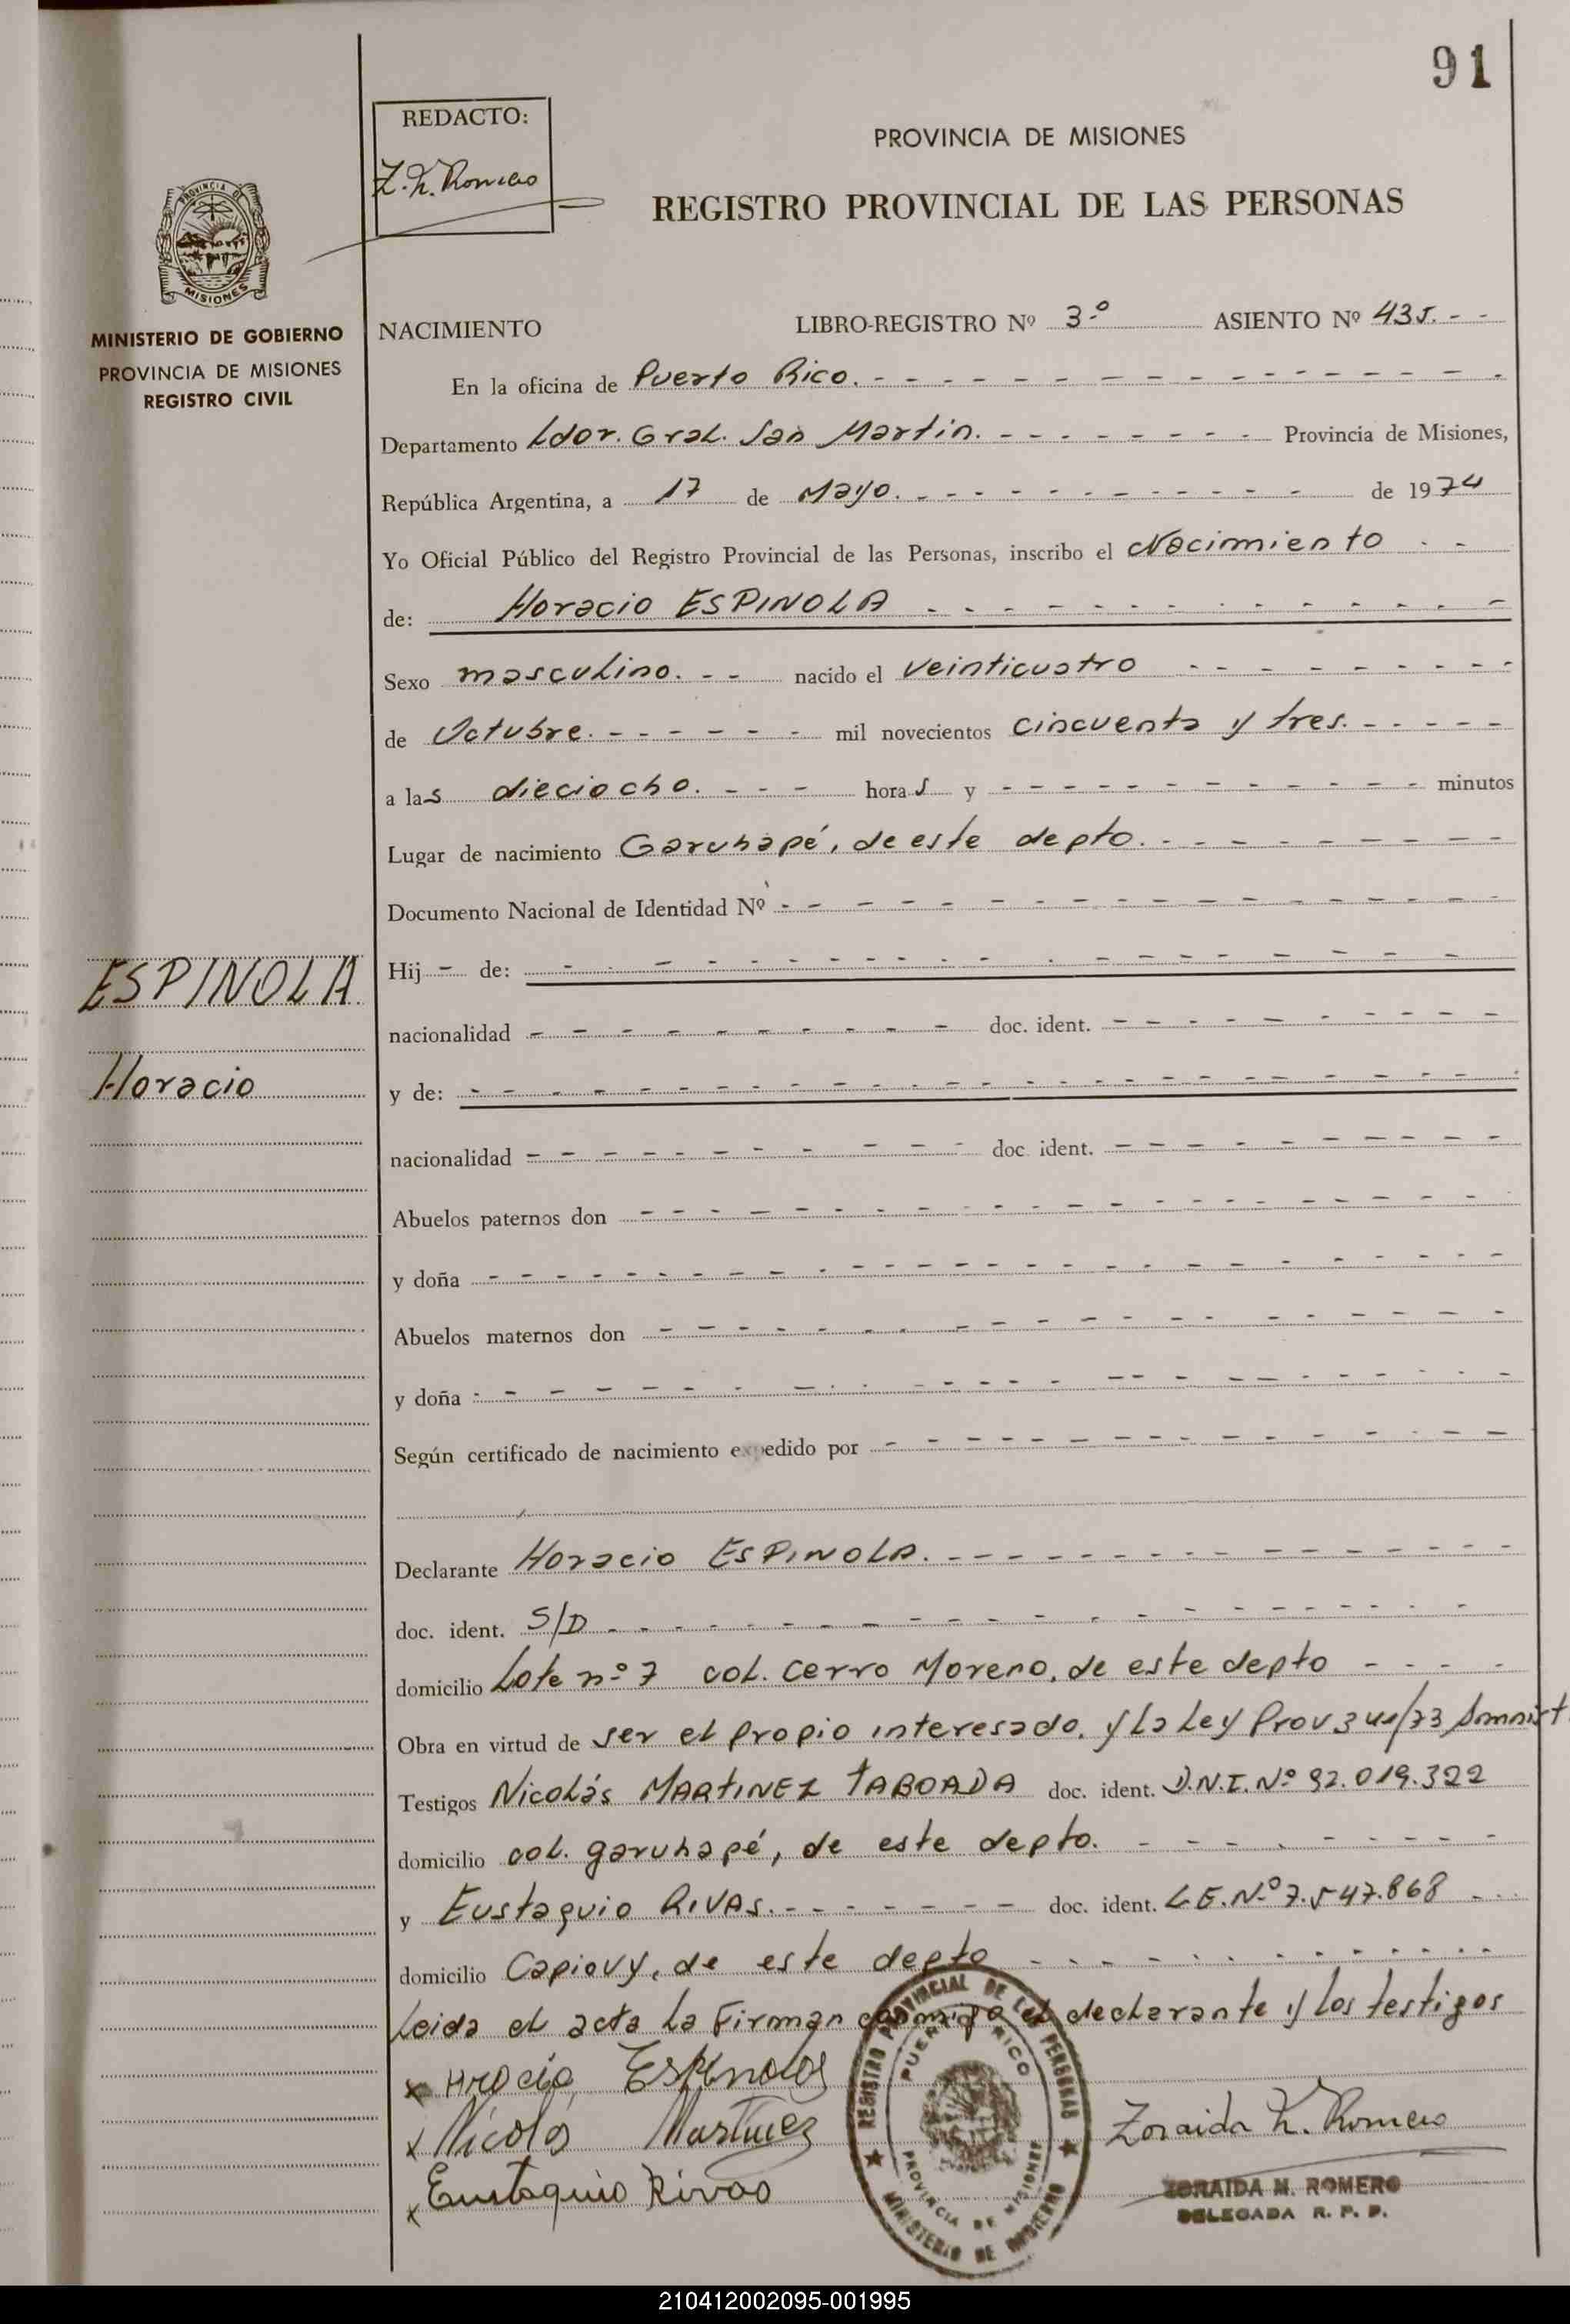 91
REDACTO:
Z. N. Romero
PROVINCIA DE MISIONES
REGISTRO PROVINCIAL DE LAS PERSONAS
PROVINCIA DE
MISIONES
MINISTERIO DE GOBIERNO
PROVINCIA DE MISIONES
REGISTRO CIVIL
NACIMIENTO LIBRO-REGISTRO Nº 3º ASIENTO Nº 435. - -
En la oficina de Puerto Rico.
Departamento Ldor. Gral. San Martín. Provincia de Misiones,
República Argentina, a 17 de Mayo. de 1974
Yo Oficial Público del Registro Provincial de las Personas, inscribo el Nacimiento
de: Horacio ESPINOLA
Sexo masculino. nacido el veinticuatro
de Octubre. mil novecientos cincuenta y tres.
a las dieciocho. horas y - minutos
Lugar de nacimiento Garuhapé, de este depto.
Documento Nacional de Identidad Nº
ESPINOLA
Hij - de:
nacionalidad doc. ident.
Horacio
y de:
nacionalidad doc. ident.
Abuelos paternos don
y doña
Abuelos maternos don
y doña
Según certificado de nacimiento expedido por
Declarante Horacio ESPINOLA.
doc. ident. S/D
domicilio Lote nº 7 col. Cerro Moreno, de este depto
Obra en virtud de ser el propio interesado. y la Ley Prov 341/73 Amnist
Testigos Nicolás MARTINEZ TABOADA doc. ident. D.N.I. Nº 92.019.322
domicilio col. garuhapé, de este depto.
y Eustaquio RIVAS. doc. ident. L.E. Nº 7.547.868
domicilio Capiovy, de este depto
Leida el acta la Firman conmigo el declarante y los testigos
x Espinola
x Nicolás Martinez
x Eustaquio Rivas
REGISTRO PROVINCIAL DE LAS PERSONAS
PUERTO RICO
PROVINCIA DE MISIONES
MINISTERIO DE GOBIERNO
Zoraida N. Romero
ZORAIDA N. ROMERO
DELEGADA R. P. P.
210412002095-001995